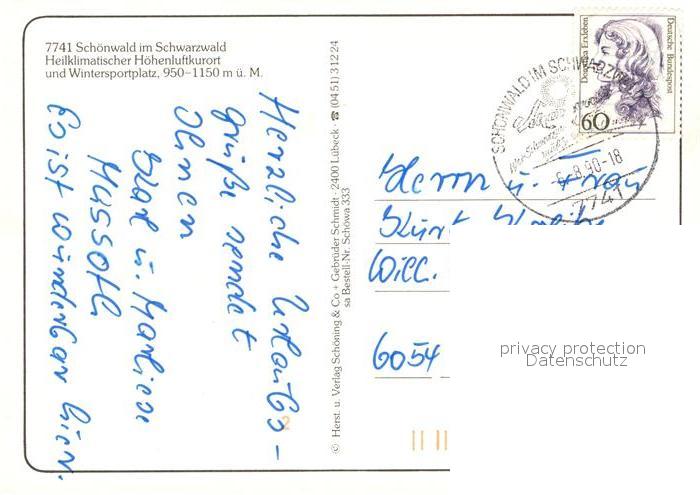 7741 Schönwald im Schwarzwald
Heilklimatischer Höhenluftkurort
und Wintersportplatz, 950–1150 m ü. M.
Herzliche Urlaubs-
grüße sendet
Ihnen
u. Marliese
Es ist wunderbar hier.
© Herst. u. Verlag Schöning & Co + Gebrüder Schmidt · 2400 Lübeck · ☎ (0451) 312 24
sa Bestell-Nr. Schöwa 333
Dorothea Erxleben
Deutsche Bundespost
60
SCHÖNWALD IM SCHWARZWALD
6.8.90-18
7741
Herrn u. Frau
Kurt
6054
2
privacy protection
Datenschutz